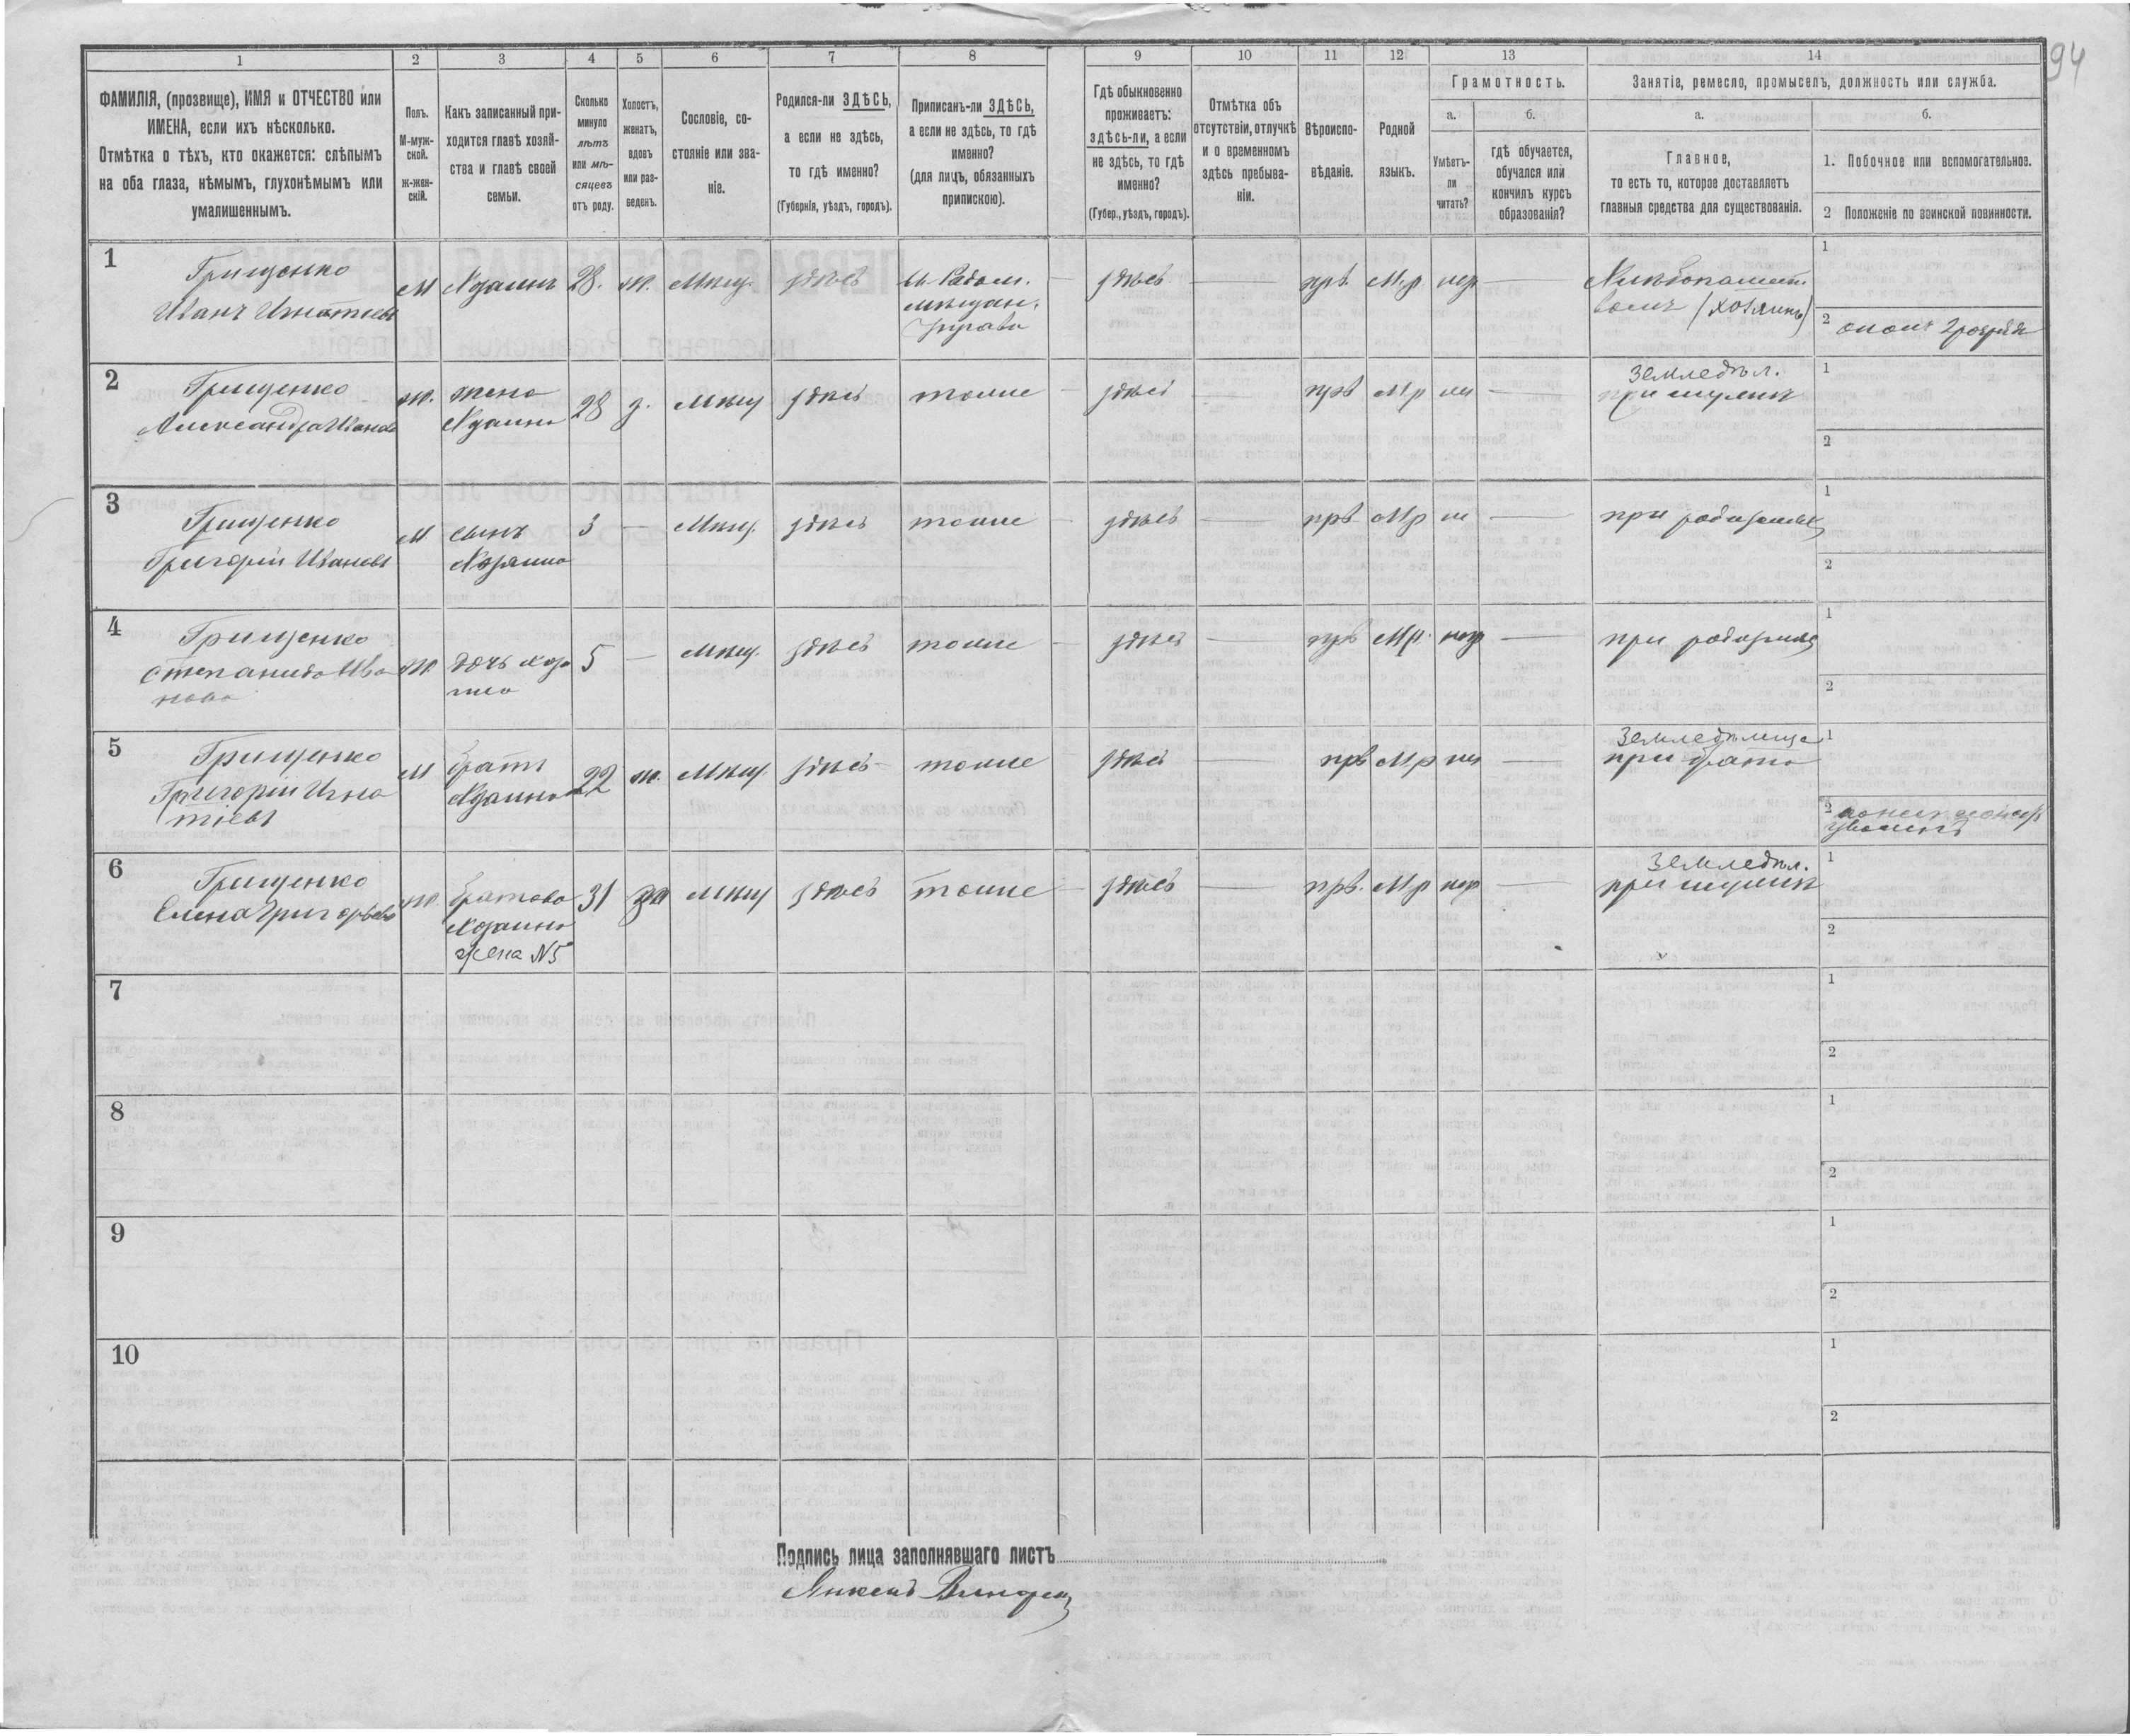 94
1 2 3 4 5 6 7 8 9 10 11 12 13 14
ФАМИЛІЯ, (прозвище), ИМЯ и ОТЧЕСТВО или
ИМЕНА, если ихъ нѣсколько.
Отмѣтка о тѣхъ, кто окажется: слѣпымъ
на оба глаза, нѣмымъ, глухонѣмымъ или
умалишеннымъ.
Полъ.
М-муж-
ской.
Ж-жен-
скій.
Какъ записанный при-
ходится главѣ хозяй-
ства и главѣ своей
семьи.
Сколько
минуло
лѣтъ
или мѣ-
сяцевъ
отъ роду.
Холостъ,
женатъ,
вдовъ
или раз-
веденъ.
Сословіе, со-
стояніе или зва-
ніе.
Родился-ли ЗДѢСЬ,
а если не здѣсь,
то гдѣ именно?
(Губернія, уѣздъ, городъ).
Приписанъ-ли ЗДѢСЬ,
а если не здѣсь, то гдѣ
именно?
(для лицъ, обязанныхъ
припискою).
Гдѣ обыкновенно
проживаетъ:
здѣсь-ли, а если
не здѣсь, то гдѣ
именно?
(Губер., уѣздъ, городъ).
Отмѣтка объ
отсутствіи, отлучкѣ
и о временномъ
здѣсь пребыва-
ніи.
Вѣроиспо-
вѣданіе.
Родной
языкъ.
Грамотность.
а.
Умѣетъ-
ли
читать?
б.
гдѣ обучается,
обучался или
кончилъ курсъ
образованія?
Занятіе, ремесло, промыселъ, должность или служба.
а.
Главное,
то есть то, которое доставляетъ
главныя средства для существованія.
б.
1. Побочное или вспомогательное.
2 Положеніе по воинской повинности.
1
Грищенко
Иванъ Игнатіевъ
М
28.
ж.
Мѣщ.
здѣсь
м. Радом.
мѣщан.
управа
здѣсь
прв.
М.р.
нѣтъ
(хозяинъ)
1
2
2
Грищенко
Александра Иванова
ж.
жена
хозяина
28
з.
Мѣщ
здѣсь
тоже
здѣсь
прв
М.р
Земледѣл.
при мужѣ
1
2
3
Грищенко
Григорій Ивановъ
М
сынъ
Хозяина
3
Мѣщ.
здѣсь
тоже
здѣсь
прв.
М.р
при родителяхъ
1
2
4
Грищенко
Степанида Ива
нова
ж
дочь хозя
ина
5
Мѣщ.
здѣсь
тоже
здѣсь
прв
М.р.
при родителяхъ
1
2
5
Грищенко
Григорій Игна
тіевъ
М
братъ
хозяина
22
ж.
Мѣщ.
здѣсь
тоже
здѣсь
прв
М.р
при братѣ
1
2
6
Грищенко
Елена Григорьева
ж.
братова
хозяина
жена №5
31
Мѣщ
здѣсь
тоже
здѣсь
прв.
М.р
Земледѣл.
при мужѣ
1
2
7
1
2
8
1
2
9
1
2
10
1
2
Подпись лица заполнявшаго листъ